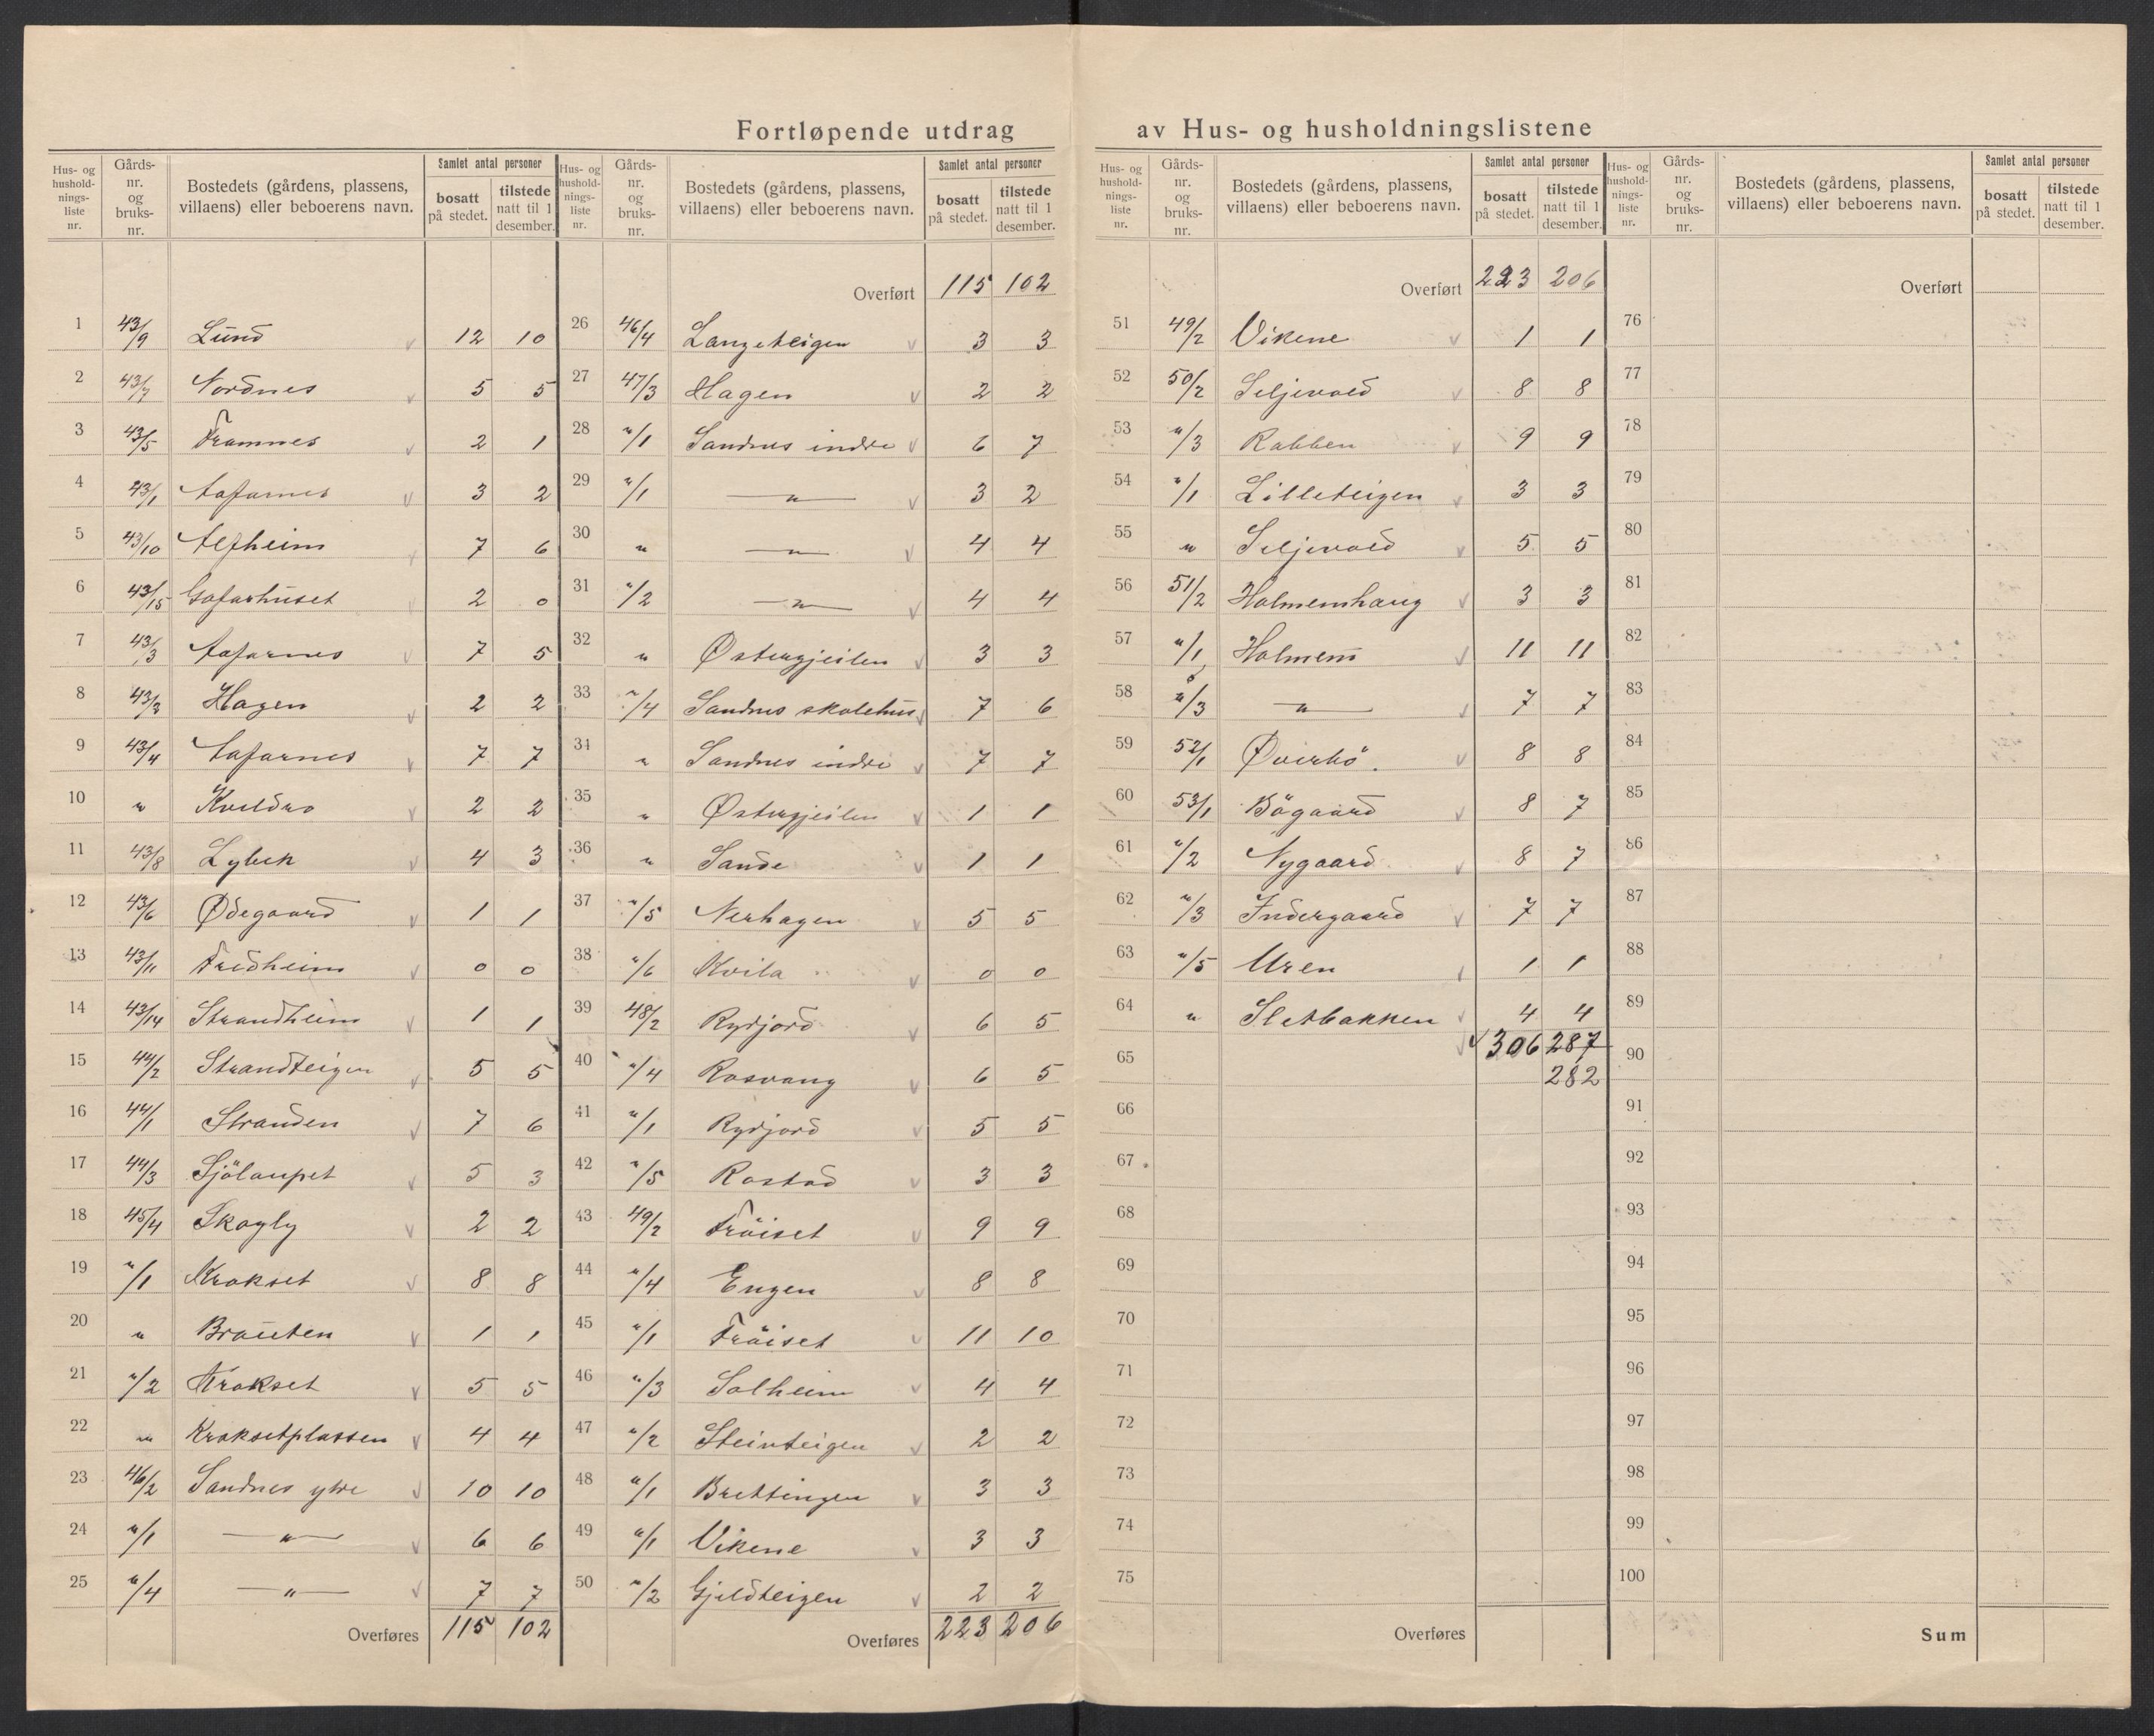 Fortløpende utdrag av Hus- og husholdningslistene
Hus- og hushold-nings-liste nr. | Gårds-nr. og bruks-nr. | Bostedets (gårdens, plassens, villaens) eller beboerens navn. | Samlet antal personer | bosatt på stedet. | tilstede natt til 1 desember.
1 43/9 Lund 12 10
2 43/7 Nordnes 5 5
3 43/5 Framnes 2 1
4 43/1 Aafarnes 3 2
5 43/10 Alfheim 7 6
6 43/15 Gafarhuset 2 0
7 43/3 Aafarnes 7 5
8 43/2 Hagen 2 2
9 43/4 Aafarnes 7 7
10 " Kveldro 2 2
11 43/8 Lybek 4 3
12 43/6 Ødegaard 1 1
13 43/11 Fredheim 0 0
14 43/14 Strandheim 1 1
15 44/2 Strandteigen 5 5
16 44/1 Stranden 7 6
17 44/3 Sjölaupet 5 3
18 45/4 Skogly 2 2
19 "/1 Krokset 8 8
20 " Brauten 1 1
21 "/2 Krokset 5 5
22 " Kroksetplassen 4 4
23 46/2 Sandnes ytre 10 10
24 "/1 — " — 6 6
25 "/4 — " — 7 7
Overføres 115 102
Hus- og hushold-nings-liste nr. | Gårds-nr. og bruks-nr. | Bostedets (gårdens, plassens, villaens) eller beboerens navn. | Samlet antal personer | bosatt på stedet. | tilstede natt til 1 desember.
Overført 115 102
26 46/4 Langeteigen 3 3
27 47/3 Hagen 2 2
28 "/1 Sandnes indre 6 7
29 "/1 — " — 3 2
30 " — " — 4 4
31 "/2 — " — 4 4
32 " Østergjeilen 3 3
33 "/4 Sandnes skolehus 7 6
34 " Sandnes indre 7 7
35 " Østergjeilen 1 1
36 " Sande 1 1
37 "/5 Nerhagen 5 5
38 "/6 Kvila 0 0
39 48/2 Rydjord 6 5
40 "/4 Rosvang 6 5
41 "/1 Rydjord 5 5
42 "/5 Rostad 3 3
43 49/2 Fröiset 9 9
44 "/4 Engen 8 8
45 "/1 Fröiset 11 10
46 "/3 Solheim 4 4
47 "/2 Steinteigen 2 2
48 "/1 Brettingen 3 3
49 "/1 Vikene 3 3
50 "/2 Gjeldteigen 2 2
Overføres 223 206
Hus- og hushold-nings-liste nr. | Gårds-nr. og bruks-nr. | Bostedets (gårdens, plassens, villaens) eller beboerens navn. | Samlet antal personer | bosatt på stedet. | tilstede natt til 1 desember.
Overført 223 206
51 49/2 Vikene 1 1
52 50/2 Seljevold 8 8
53 "/3 Rabben 9 9
54 "/1 Lilleteigen 3 3
55 " Seljevold 5 5
56 51/2 Holmemshaug 3 3
57 "/1 Holmem 11 11
58 "/3 — " — 7 7
59 52/1 Øverbö. 8 8
60 53/1 Bögaard 8 7
61 "/2 Nygaard 8 7
62 "/3 Indergaard 7 7
63 "/5 Uren 1 1
64 " Sletbakken 4 4
65 306 287
282
66
67
68
69
70
71
72
73
74
75
Overføres
Hus- og hushold-nings-liste nr. | Gårds-nr. og bruks-nr. | Bostedets (gårdens, plassens, villaens) eller beboerens navn. | Samlet antal personer | bosatt på stedet. | tilstede natt til 1 desember.
Overført
76
77
78
79
80
81
82
83
84
85
86
87
88
89
90
91
92
93
94
95
96
97
98
99
100
Sum